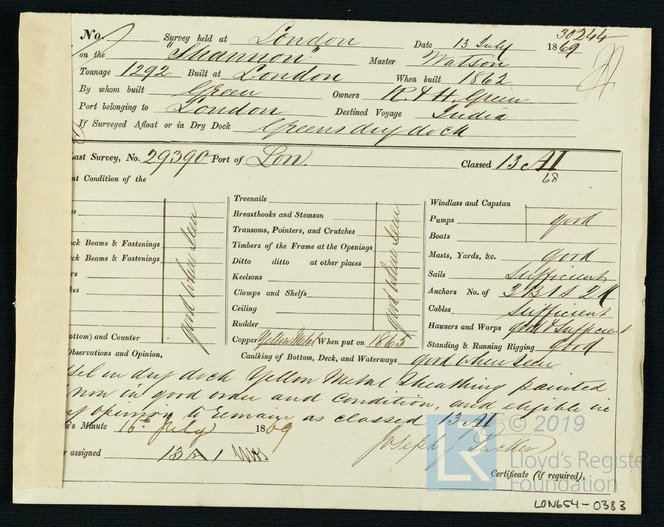 30244
No. Survey held at London Date 13 July 1869
on the "Shannon" Master Watson
Tonnage 1292 Built at London When built 1862
By whom built Green Owners R & H. Green
Port belonging to London Destined Voyage India
If Surveyed Afloat or in Dry Dock Greens dry dock
Last Survey, No. 29390 Port of Lon. Classed 13 AI
68
nt Condition of the
ck Beams & Fastenings
ck Beams & Fastenings
good where seen
ottom) and Counter
Treenails
Breasthooks and Stemson
Transoms, Pointers, and Crutches
Timbers of the Frame at the Openings
Ditto ditto at other places
Keelsons
Clamps and Shelfs
Ceiling
Rudder
good where seen
Copper Yellow Metal When put on 1865
Windlass and Capstan
Pumps good
Boats
Masts, Yards, &c. good
Sails Sufficient
Anchors No. of 3 B 1 S 2 K
Cables Sufficient
Hawsers and Warps good & sufficient
Standing & Running Rigging good
Caulking of Bottom, Deck, and Waterways good where seen
Observations and Opinion,
sel in dry dock Yellow Metal Sheathing painted
in good order and condition, and eligible in
my opinion to remain as classed 13 AI
's Minute 16th July 1869
Joseph J Tucker
r assigned 13 A 1
Certificate (if required).
© 2019
LR
Lloyd's Register
Foundation
LON654-0383